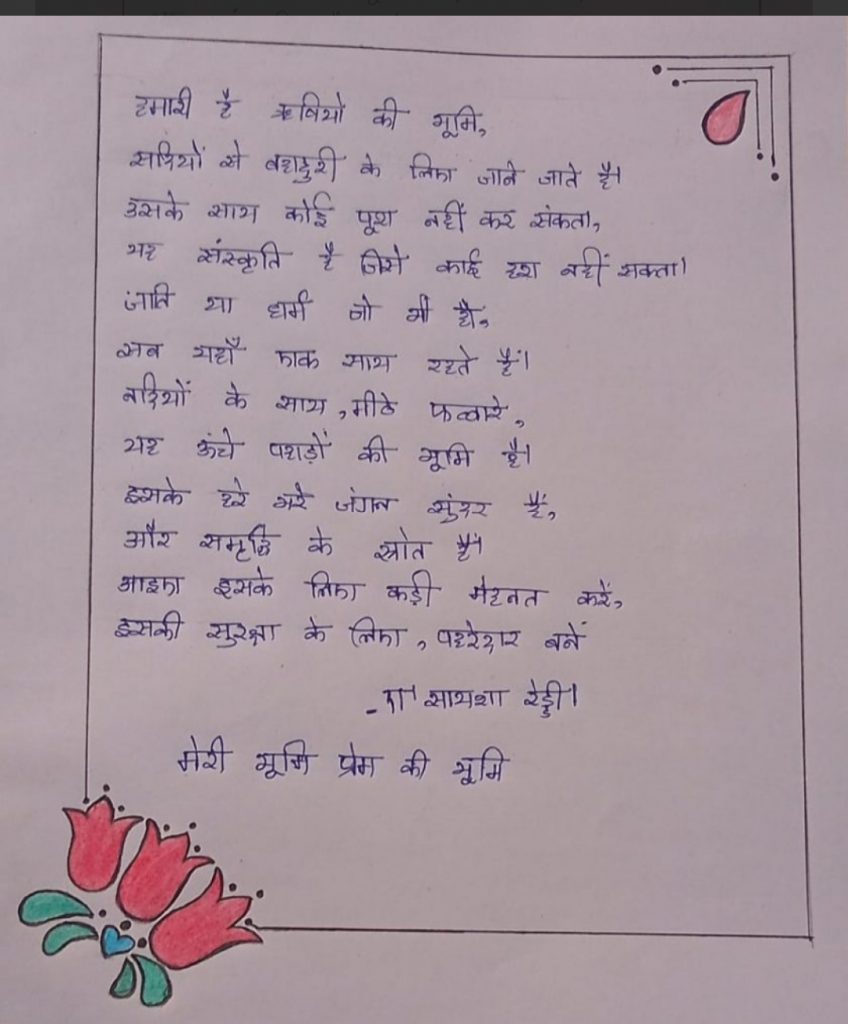 हमारी है ऋषियों की भूमि,
सदियों से बहादुरी के लिए जाने जाते है।
उसके साथ कोई पूरा नहीं कर संकता,
यह संस्कृति है जिसे कोई हरा नहीं सकता।
जाति या धर्म जो भी हो,
सब यहाँ एक साथ रहते हैं।
नदियों के साथ, मीठे फव्वारे,
यह ऊंचे पहाड़ों की भूमि है।
इसके हरे भरे जंगल सुंदर हैं,
और समृद्धि के स्रोत हैं।
आइए इसके लिए कड़ी मेहनत करें,
इसकी सुरक्षा के लिए, पहरेदार बनें
सायशा रेड्डी।
मेरी भूमि प्रेम की भूमि